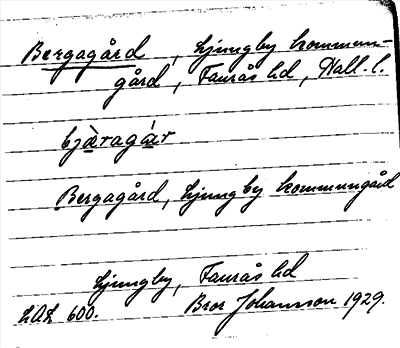 Bergagård, Ljungby kommun-
gård, Faurås hd, Hall. l.
bjä̀ragár
Bergagård, Ljungby kommungård
Ljungby, Faurås hd
LAL 600. Bror Johansson 1929.